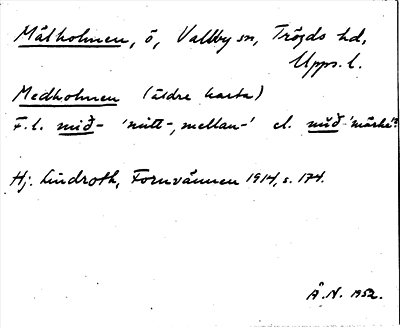 Målholmen, ö, Vallby sn, Trögds hd,
Upps. l.
Medholmen (äldre karta)
F. l. mið- 'mitt-, mellan-' el. mið 'märke'?
Hj. Lindroth, Fornvännen 1914, s. 174.
Å.N. 1952.